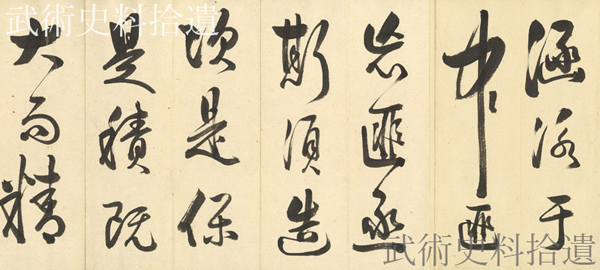 涵泳于
中匪
忘匪亟
斯須造
次是保
是積既
大而精
武術史料拾遺
武術史料拾遺